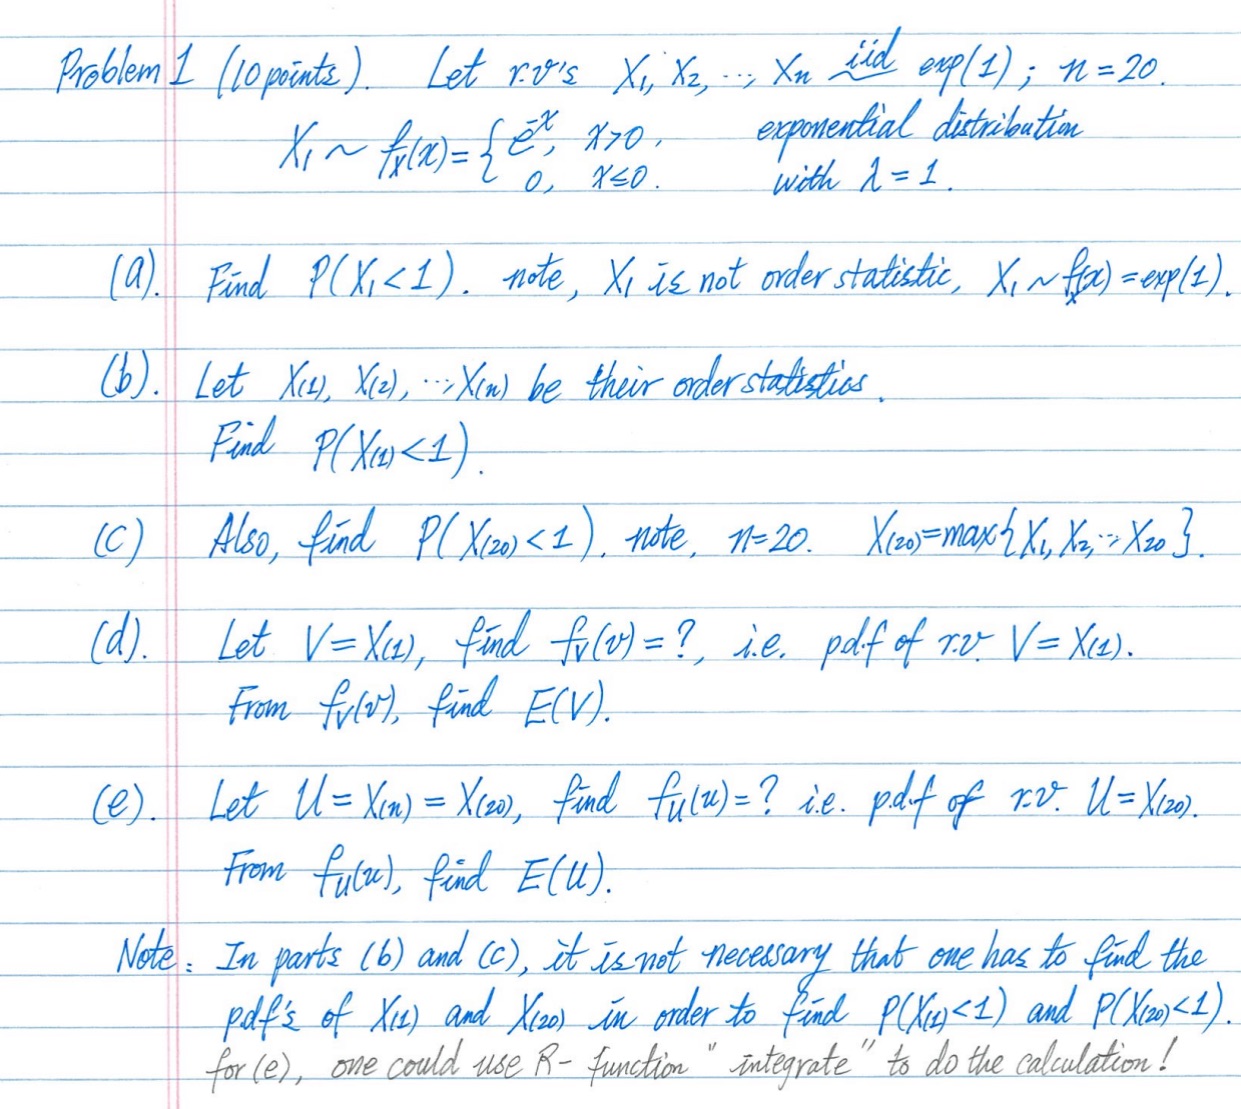 Problem 1 (10 points). Let r.v's X₁, X₂, ..., Xn iid exp(1); n=20.
X₁ ~ fx(x) = { e^-x, x>0, exponential distribution
0, x≤0. with λ=1.
(a). Find P(X₁<1). note, X₁ is not order statistic, X₁ ~ fx(x) = exp(1).
(b). Let X(1), X(2), ..., X(n) be their order statistics.
Find P(X(1)<1).
(c) Also, find P(X(20)<1). note, n=20. X(20)=max{X₁, X₂, ... X20}.
(d). Let V=X(1), find fv(v)=?, i.e. pdf of r.v. V=X(1).
From fv(v), find E(V).
(e). Let U=X(n)=X(20), find fu(u)=? i.e. p.d.f of r.v. U=X(20).
From fu(u), find E(U).
Note: In parts (b) and (c), it is not necessary that one has to find the
pdf's of X(1) and X(20) in order to find P(X(1)<1) and P(X(20)<1).
for (e), one could use R-function "integrate" to do the calculation!